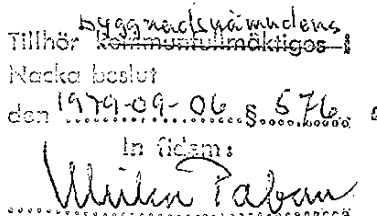 byggnadsnämndens
Tillhör kommunfullmäktiges i
Nacka beslut
den 1979-09-06 § 576
In fidem:
Ulrika